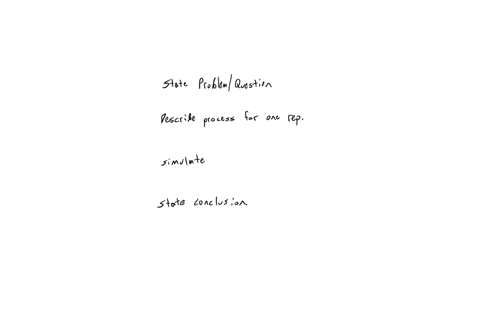 State Problem/Question
Describe process for one rep.
simulate
state conclusion